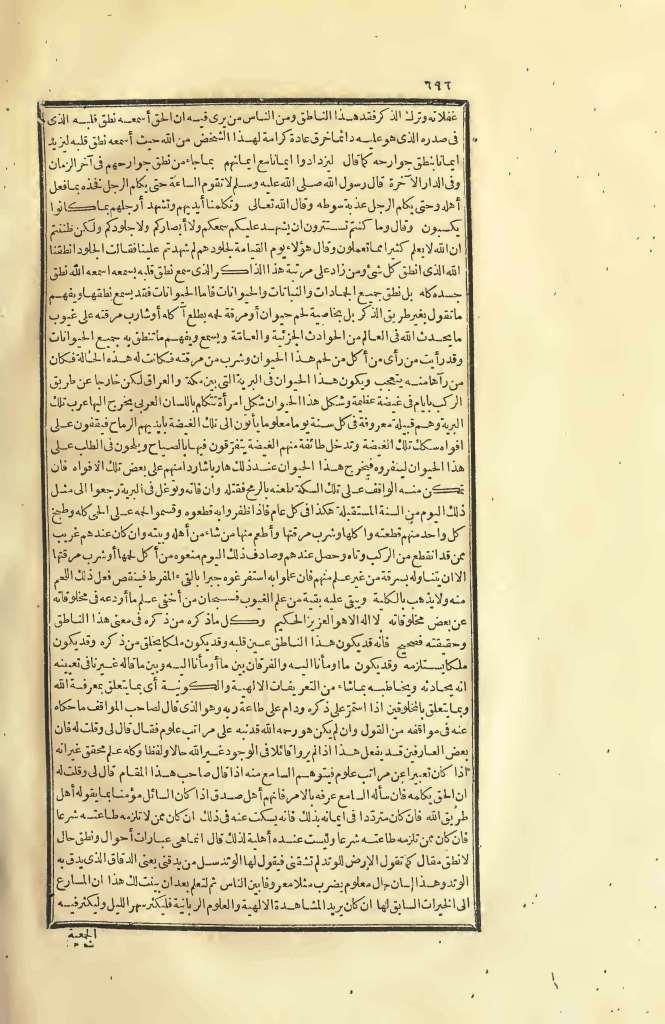 ٦٩٦
غفلاته وترك الذكر فقد هذا الناطق ومن الناس من يرى فيه ان الحق أسمعه نطق قلبه الذى
فى صدره الذى هو عليه دائما خرق عادة كرامة لهذا الشخص من الله حيث أسمعه نطق قلبه ليزيد
ايمانا بنطق جوارحه كما قال ليزدادوا ايمانا مع ايمانهم بما جاء من نطق جوارحهم فى آخر الزمان
وفى الدار الآخرة قال رسول الله صلى الله عليه وسلم لا تقوم الساعة حتى يكلم الرجل فخذه بما فعل
أهله وحتى يكلم الرجل عذبة سوطه وقال الله تعالى وتكلمنا أيديهم وتشهد أرجلهم بما كانوا
يكسبون وقال وما كنتم تستترون ان يشهد عليكم سمعكم ولا أبصاركم ولا جلودكم ولكن ظننتم
ان الله لا يعلم كثيرا مما تعملون وقال هؤلاء يوم القيامة لجلودهم لم شهدتم علينا فقالت الجلود انطقنا
الله الذى انطق كل شئ ومن زاد على مرتبة هذا الذاكر الذى سمع نطق قلبه بسمعه اسمعه الله نطق
جسده كله بل نطق جميع الجمادات والنباتات والحيوانات فاما الحيوانات فقد يسمع نطقها ويفهم
ما تقول بغير طريق الذكر بل بخاصية لحم حيوان أو مرقة لحمه يطلع آكله أو شارب مرقته على غيوب
ما يحدث الله فى العالم من الحوادث الجزئية والعامة ويسمع ويفهم ما تنطق به جميع الحيوانات
وقد رأيت من رأى من أكل من لحم هذا الحيوان وشرب من مرقته فكانت له هذه الحالة فكان
من رآها منه يتعجب ويكون هذا الحيوان فى البرية التى بين مكة والعراق لكن خارجا عن طريق
الركب بأيام فى غيضة عظيمة وشكل هذا الحيوان شكل امرأة تتكلم باللسان العربى يخرج اليها عرب تلك
البرية وهم قبيلة معروفة فى كل سنة يوما معلوما يأتون الى تلك الغيضة بأيديهم الرماح فيقفون على
افواه سكك تلك الغيضة وتدخل طائفة منهم الغيضة يتفرقون فيها بالصياح ويلحون فى الطلب على
هذا الحيوان لينفروه فيخرج هذا الحيوان عند ذلك هاربا شاردا منهم على بعض تلك الافواه فان
تمكن منه الواقف على تلك السكة طعنه بالرمح فقتله وان فاته وتوغل فى البرية رجعوا الى مثل
ذلك اليوم من السنة المستقبلة هكذا فى كل عام فاذا ظفروا به قطعوه وقسموا لحمه على الحى كله وطبخ
كل واحد منهم قطعته وأكلها وشرب مرقتها وأطعم منها من شاء من أهله وبيته وان كان عندهم غريب
ممن قد انقطع من الركب وتاه وحصل عندهم وصادف ذلك اليوم منعوه من أكل لحمها أو شرب مرقتها
الا ان يتناوله بسرقة من غير علم منهم فان علموا به استفرغوه جبرا بالقىء المفرط فينقص فعل ذلك اللحم
منه ولا يذهب بالكلية ويبقى عليه بقية من علم الغيوب فسبحان من أخفى علم ما أودعه فى مخلوقاته
عن بعض مخلوقاته لا اله الا هو العزيز الحكيم وكل ما ذكره من ذكره فى معنى هذا الناطق
وحقيقته فصحيح فانه قد يكون هذا الناطق عين قلبه وقد يكون ملكا يخلق من ذكره وقد يكون
ملكا يستلزمه وقد يكون ما اومأنا اليه والفرقان بين ما أومأنا اليه وبين ما قاله غيرنا فى تعيينه
انه يحادثه ويخاطبه بما شاء من التعريفات الالهية والكونية أى بما يتعلق بمعرفة الله
وبما يتعلق بالمخلوقين اذا استمر على ذكره ودام على طاعة ربه وهو الذى قال لصاحب المواقف ما حكاه
عنه فى مواقفه من القول وان لم يكن هو رحمه الله قد نبه على مراتب علوم فقال قال لى وقلت له فان
بعض العارفين قد يفعل هذا اذا لم ير قائلا فى الوجود غير الله حالا ولفظا وكله علم محقق غير انه
اذا كان تعبيرا عن مراتب علوم فيتوهم السامع منه اذا قال صاحب هذا المقام قال لى وقلت له
ان الحق يكلمه فان سأله السامع عرفه بالامر فانهم أهل صدق اذا كان السائل مؤمنا بما يقوله أهل
طريق الله فان كان مترددا فى ايمانه بذلك فانه يسكت عنه فى ذلك ان كان ممن لا تلزمه طاعته شرعا
فان كان ممن تلزمه طاعته شرعا وليست عنده أهلية لذلك قال انما هى عبارات أحوال ونطق حال
لا نطق مقال كما تقول الارض للوتد لم تشقنى فيقول لها الوتد سل من يدقنى يعنى الدقاق الذى يدق به
الوتد وهذا لسان حال معلوم يضرب مثلا معروفا بين الناس ثم لتعلم بعد ان بينت لك هذا ان المسارع
الى الخيرات السابق لها ان كان يريد المشاهدة الالهية والعلوم الربانية فليكثر سهر الليل وليكثر فيه
الجمعية